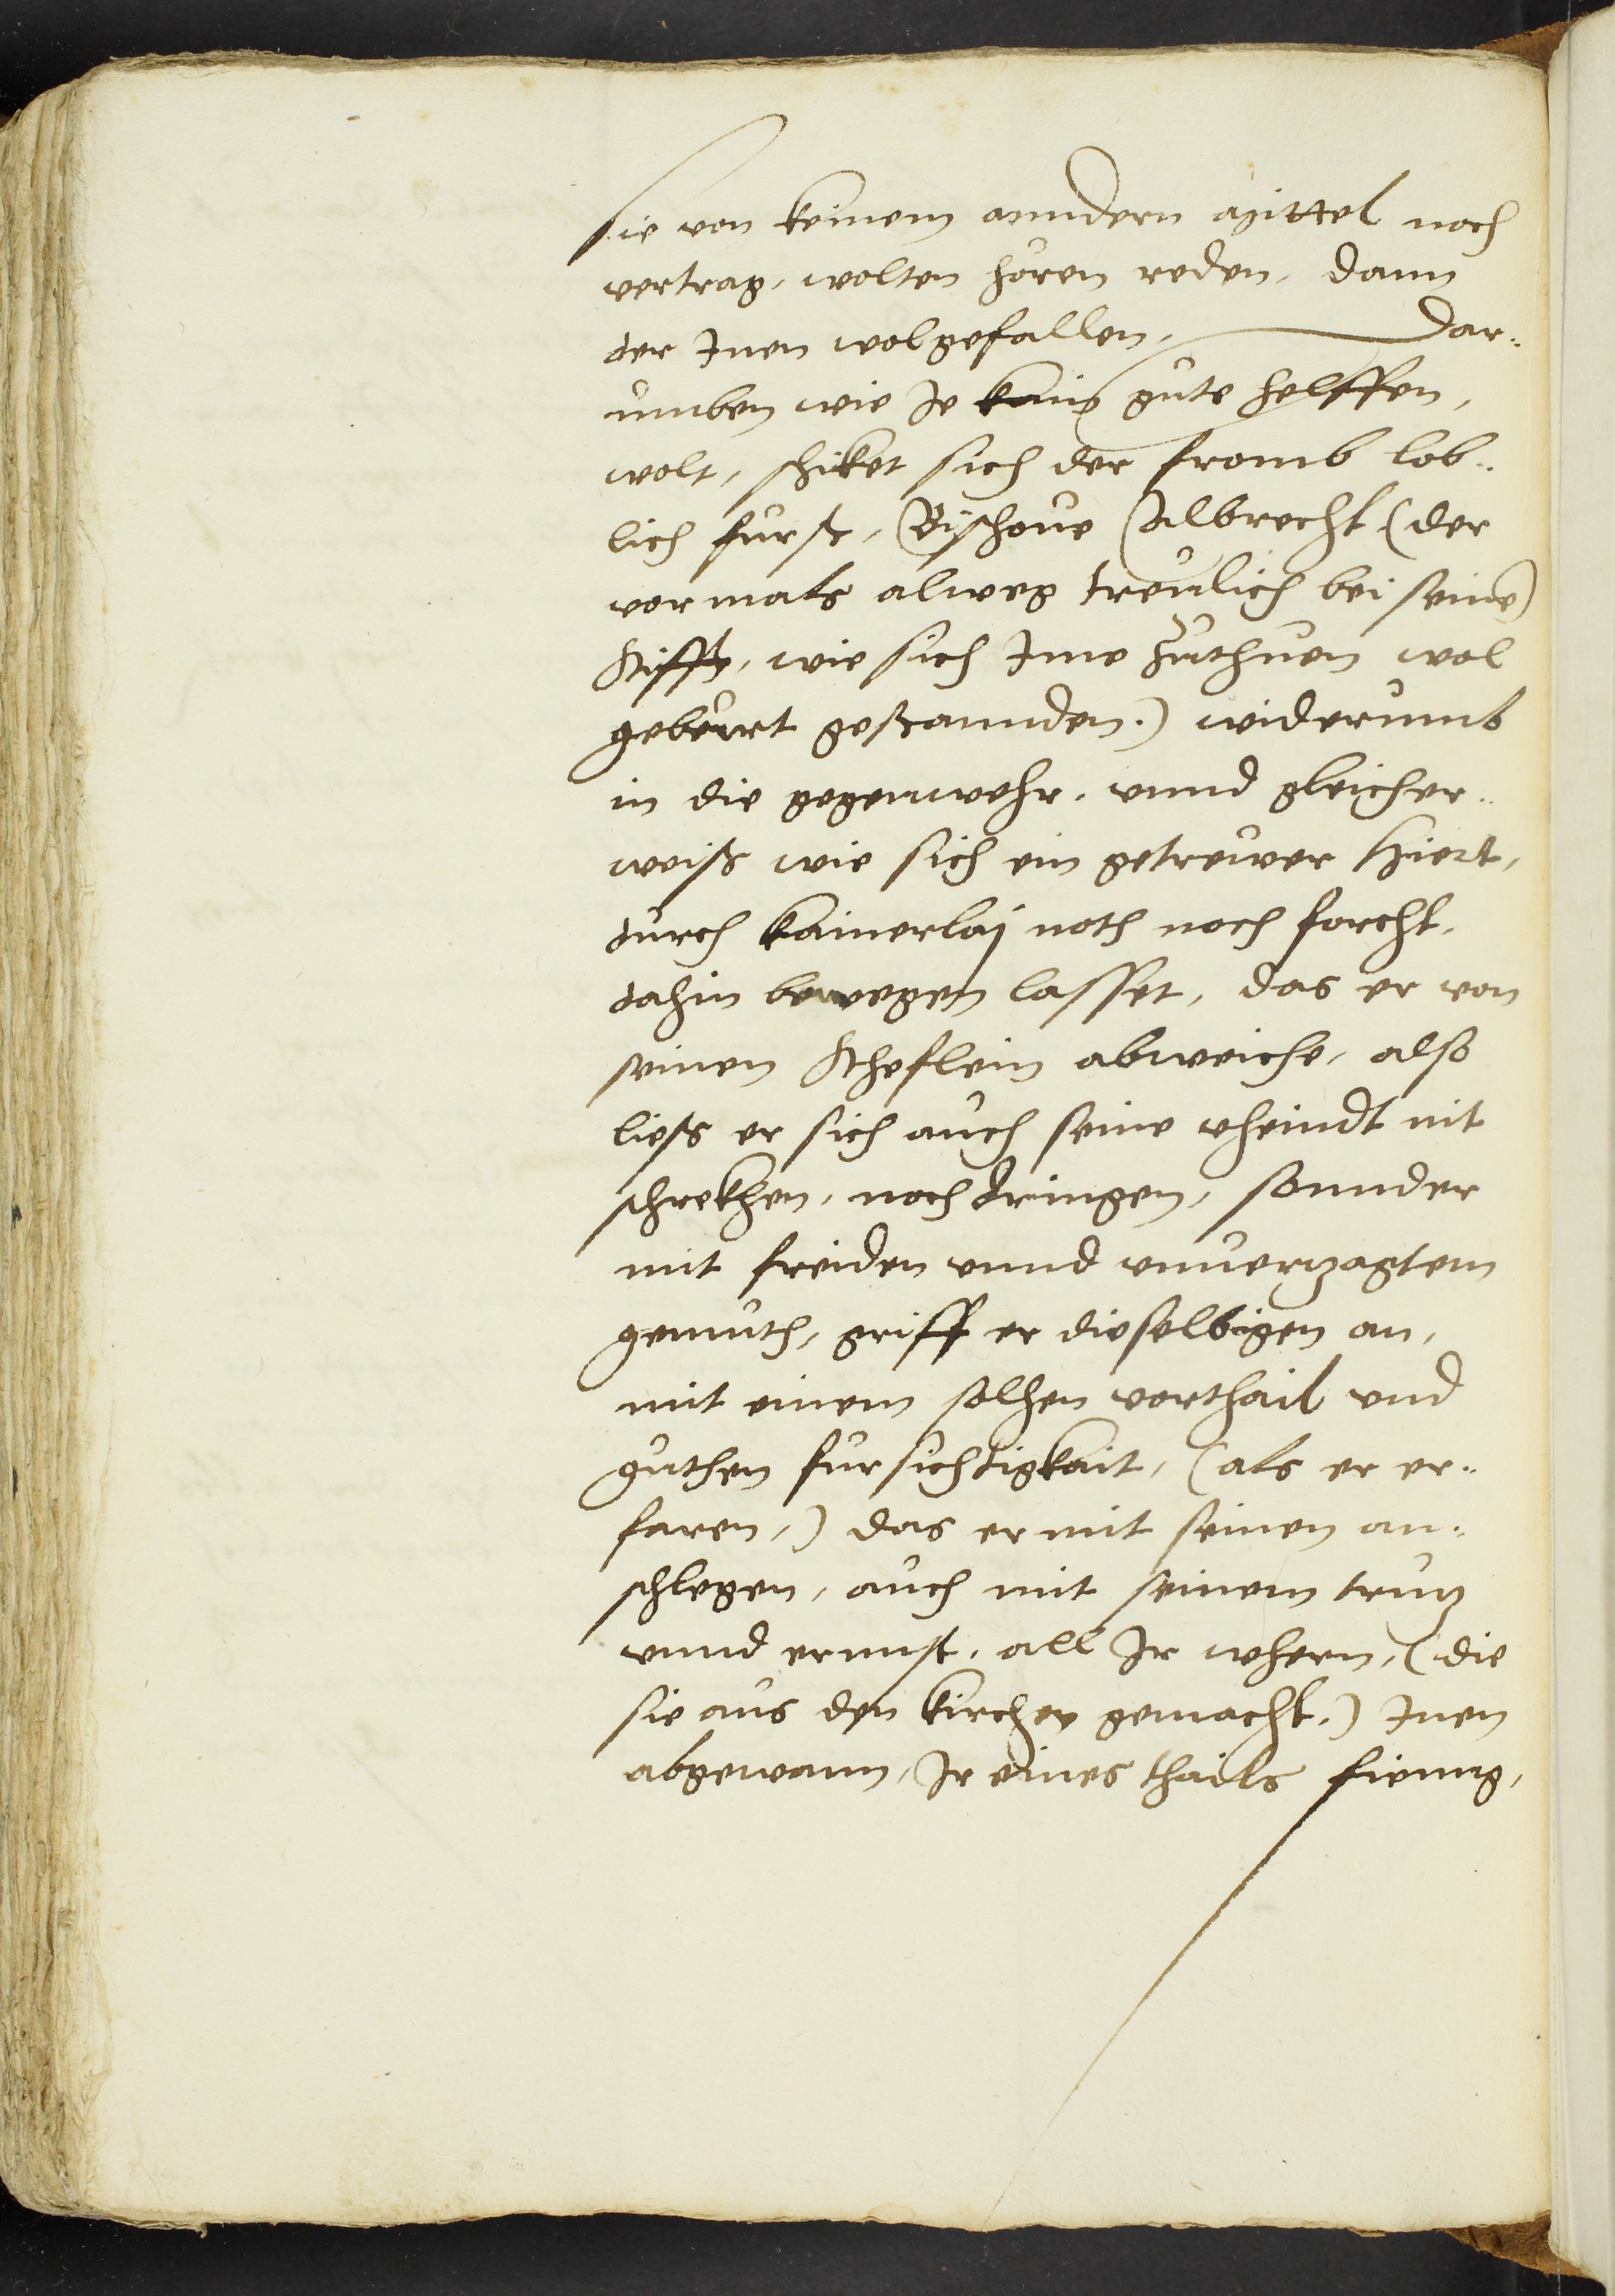 sie von keinem anndern mittel noch
vertrag, wolten hören reden, dann
der Inen wolgefallen, Dar¬
umben wie Je kain gute helffen,
wolt, schiket sich der fromb lob¬
lich furst, Bischoue Albrecht (der
vormals alweg treulich bei seine
Stifft, wie sich Ime zuthuen wol
gebürt gestannden.) widerumb
in die gegenwehr, vnnd gleicher¬
weiss wie sich ein getrewer Hiert,
durch kainerlaj noth noch forcht,
dahin bewegen lasset, das er von
seinen Scheflein abweiche, also
liess er sich auch seine vheindt nit
schrekhen, noch dringen, sonnder
mit freiden vnnd vnuerzagtem
gemuth, griff er dieselbigen an,
mit einem solhen vorthail vnd
guthen fursichtigkait, (als er er¬
faren,) das er mit seinen an¬
schlegen, auch mit seinem trutz
vnnd ernnst, all Ir whern, (die
sie aus den kirchen gemacht,) Inen
abgewann, Ir eines thails fienng,